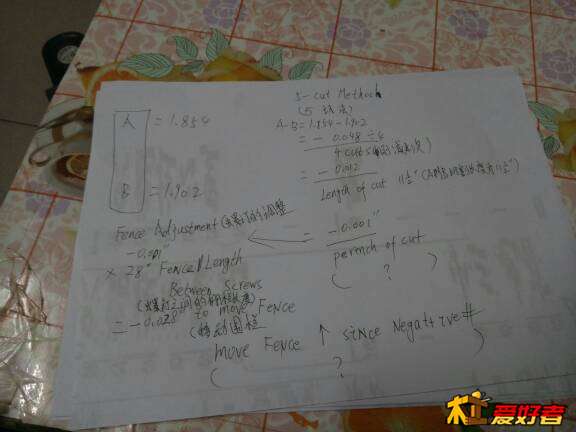 5-cut Method
(5 切法)
A = 1.854
A-B = 1.854 - 1.902
= - 0.048 ÷ 4
4 cuts
= - 0.012
Length of cut 11½"
B = 1.902
Fence Adjustment
= -0.001"
per inch of cut
( ? )
-0.001"
× 28" Fence Length
Between Screws
= -0.028" to move Fence
(移动围栏
move Fence ↑ since Negative #
( ? )
爱好者